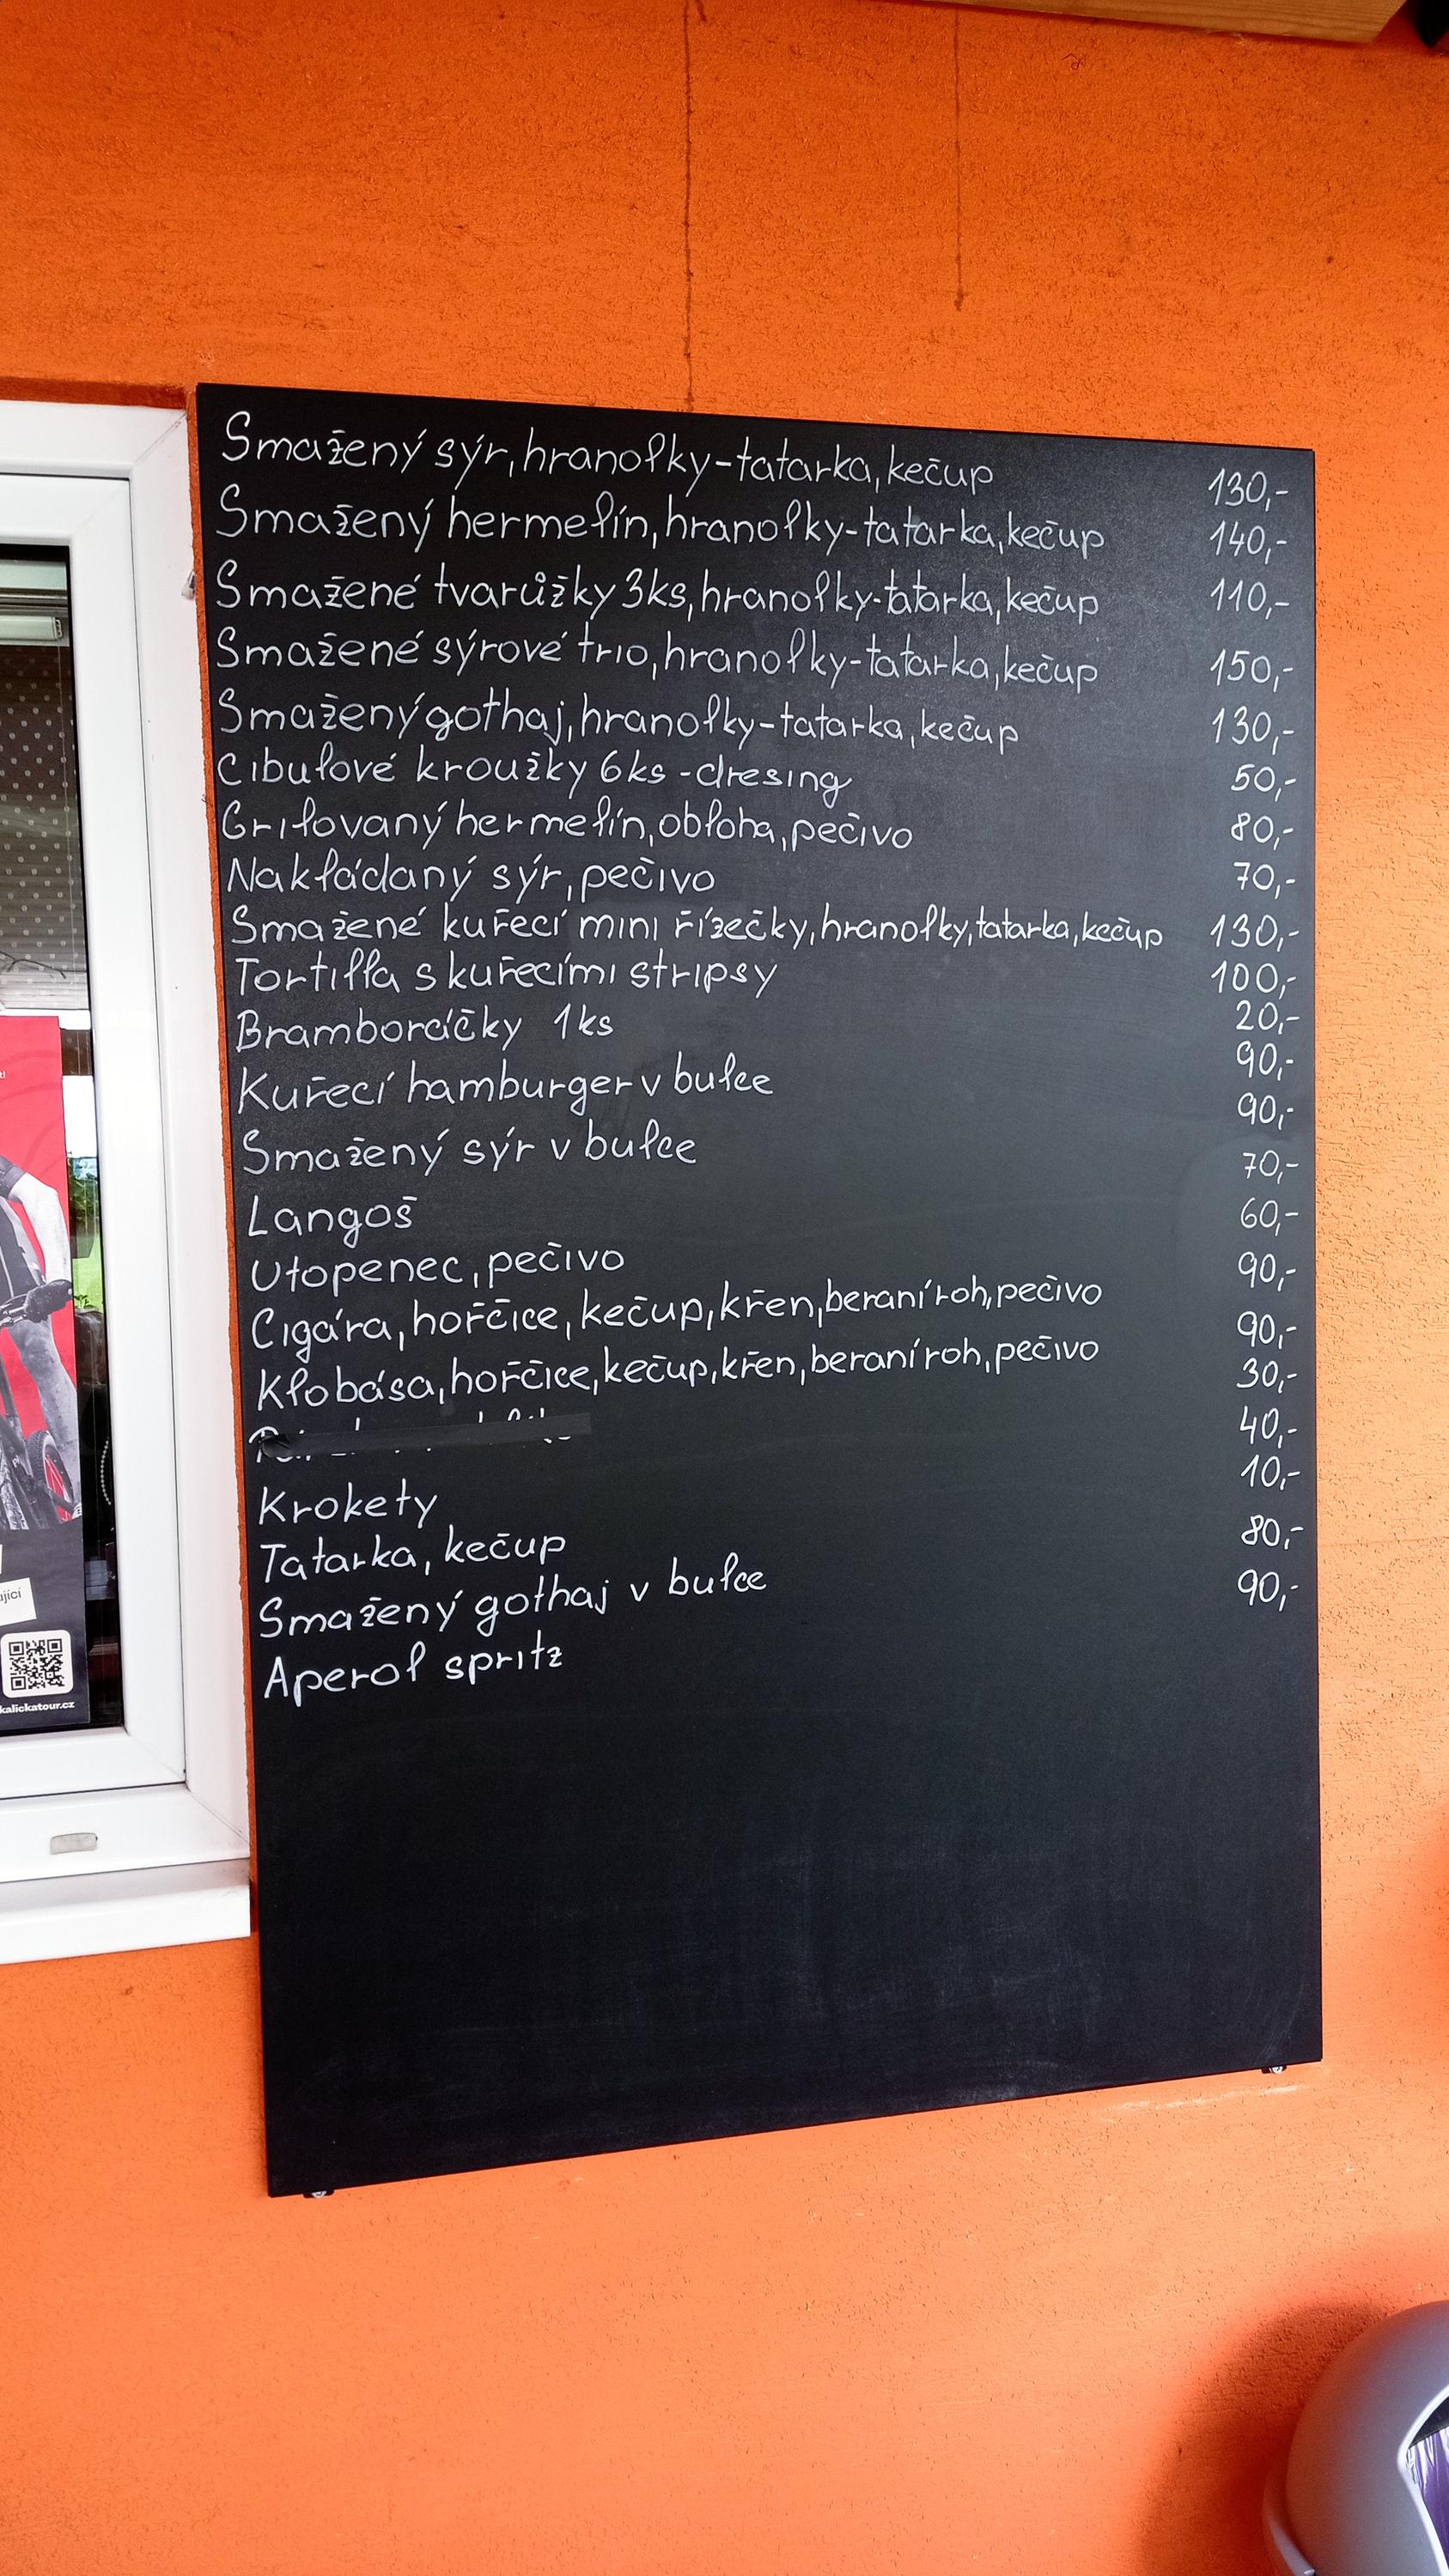 Smažený sýr, hranolky-tatarka, kečup 130,-
Smažený hermelín, hranolky-tatarka, kečup 140,-
Smažené tvarůžky 3ks, hranolky-tatarka, kečup 110,-
Smažené sýrové trio, hranolky-tatarka, kečup 150,-
Smažený gothaj, hranolky-tatarka, kečup 130,-
Cibulové kroužky 6ks -dresing 50,-
Grilovaný hermelín, obloha, pečivo 80,-
Nakládaný sýr, pečivo 70,-
Smažené kuřecí mini řízečky, hranolky, tatarka, kečup 130,-
Tortilla s kuřecími stripsy 100,-
Bramboráčky 1ks 20,-
Kuřecí hamburger v bulce 90,-
Smažený sýr v bulce 90,-
Langoš 70,-
Utopenec, pečivo 60,-
Cigára, hořčice, kečup, křen, beraní roh, pečivo 90,-
Klobása, hořčice, kečup, křen, beraní roh, pečivo 90,-
30,-
Krokety 40,-
Tatarka, kečup 10,-
Smažený gothaj v bulce 80,-
Aperol spritz 90,-
kalickatour.cz